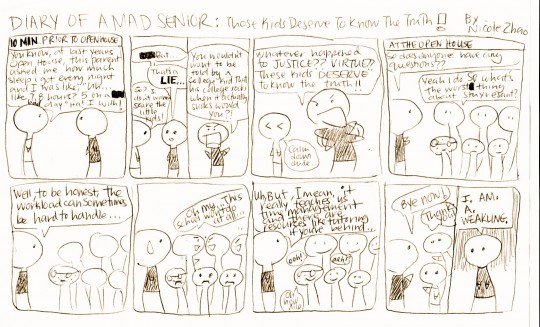 DIARY OF A MAD SENIOR: Those Kids Deserve To Know The Truth!
BY
Nicole Zhao
10 MIN PRIOR TO OPEN HOUSE
You know, at last years
Open House, this parent
asked me how much
sleep I got every night
and I was like, "uh...
like 7, 8 hours? 5 on a
day
That's a
LIE...
scare the
little
kids!
You wouldn't
want to be
told by a
college kid that
his college rocks
when it actually
sucks would
you?!
Whatever happened
to JUSTICE?? VIRTUE??
These kids DESERVE
to know the truth!!
Calm
down
dude
AT THE OPEN HOUSE
So does anyone have any
questions??
Yeah I do so what's
the worst thing
about Stuyvesant?
Well to be honest, the
workload can sometimes
be hard to handle...
Oh my... This
school wouldn't
at all...
Uh, But, I mean, it
really teaches us
time management
and there are
resources like tutoring
if you're behind...
ooh!
Bye now!
I. AM.
A.
WEAKLING.